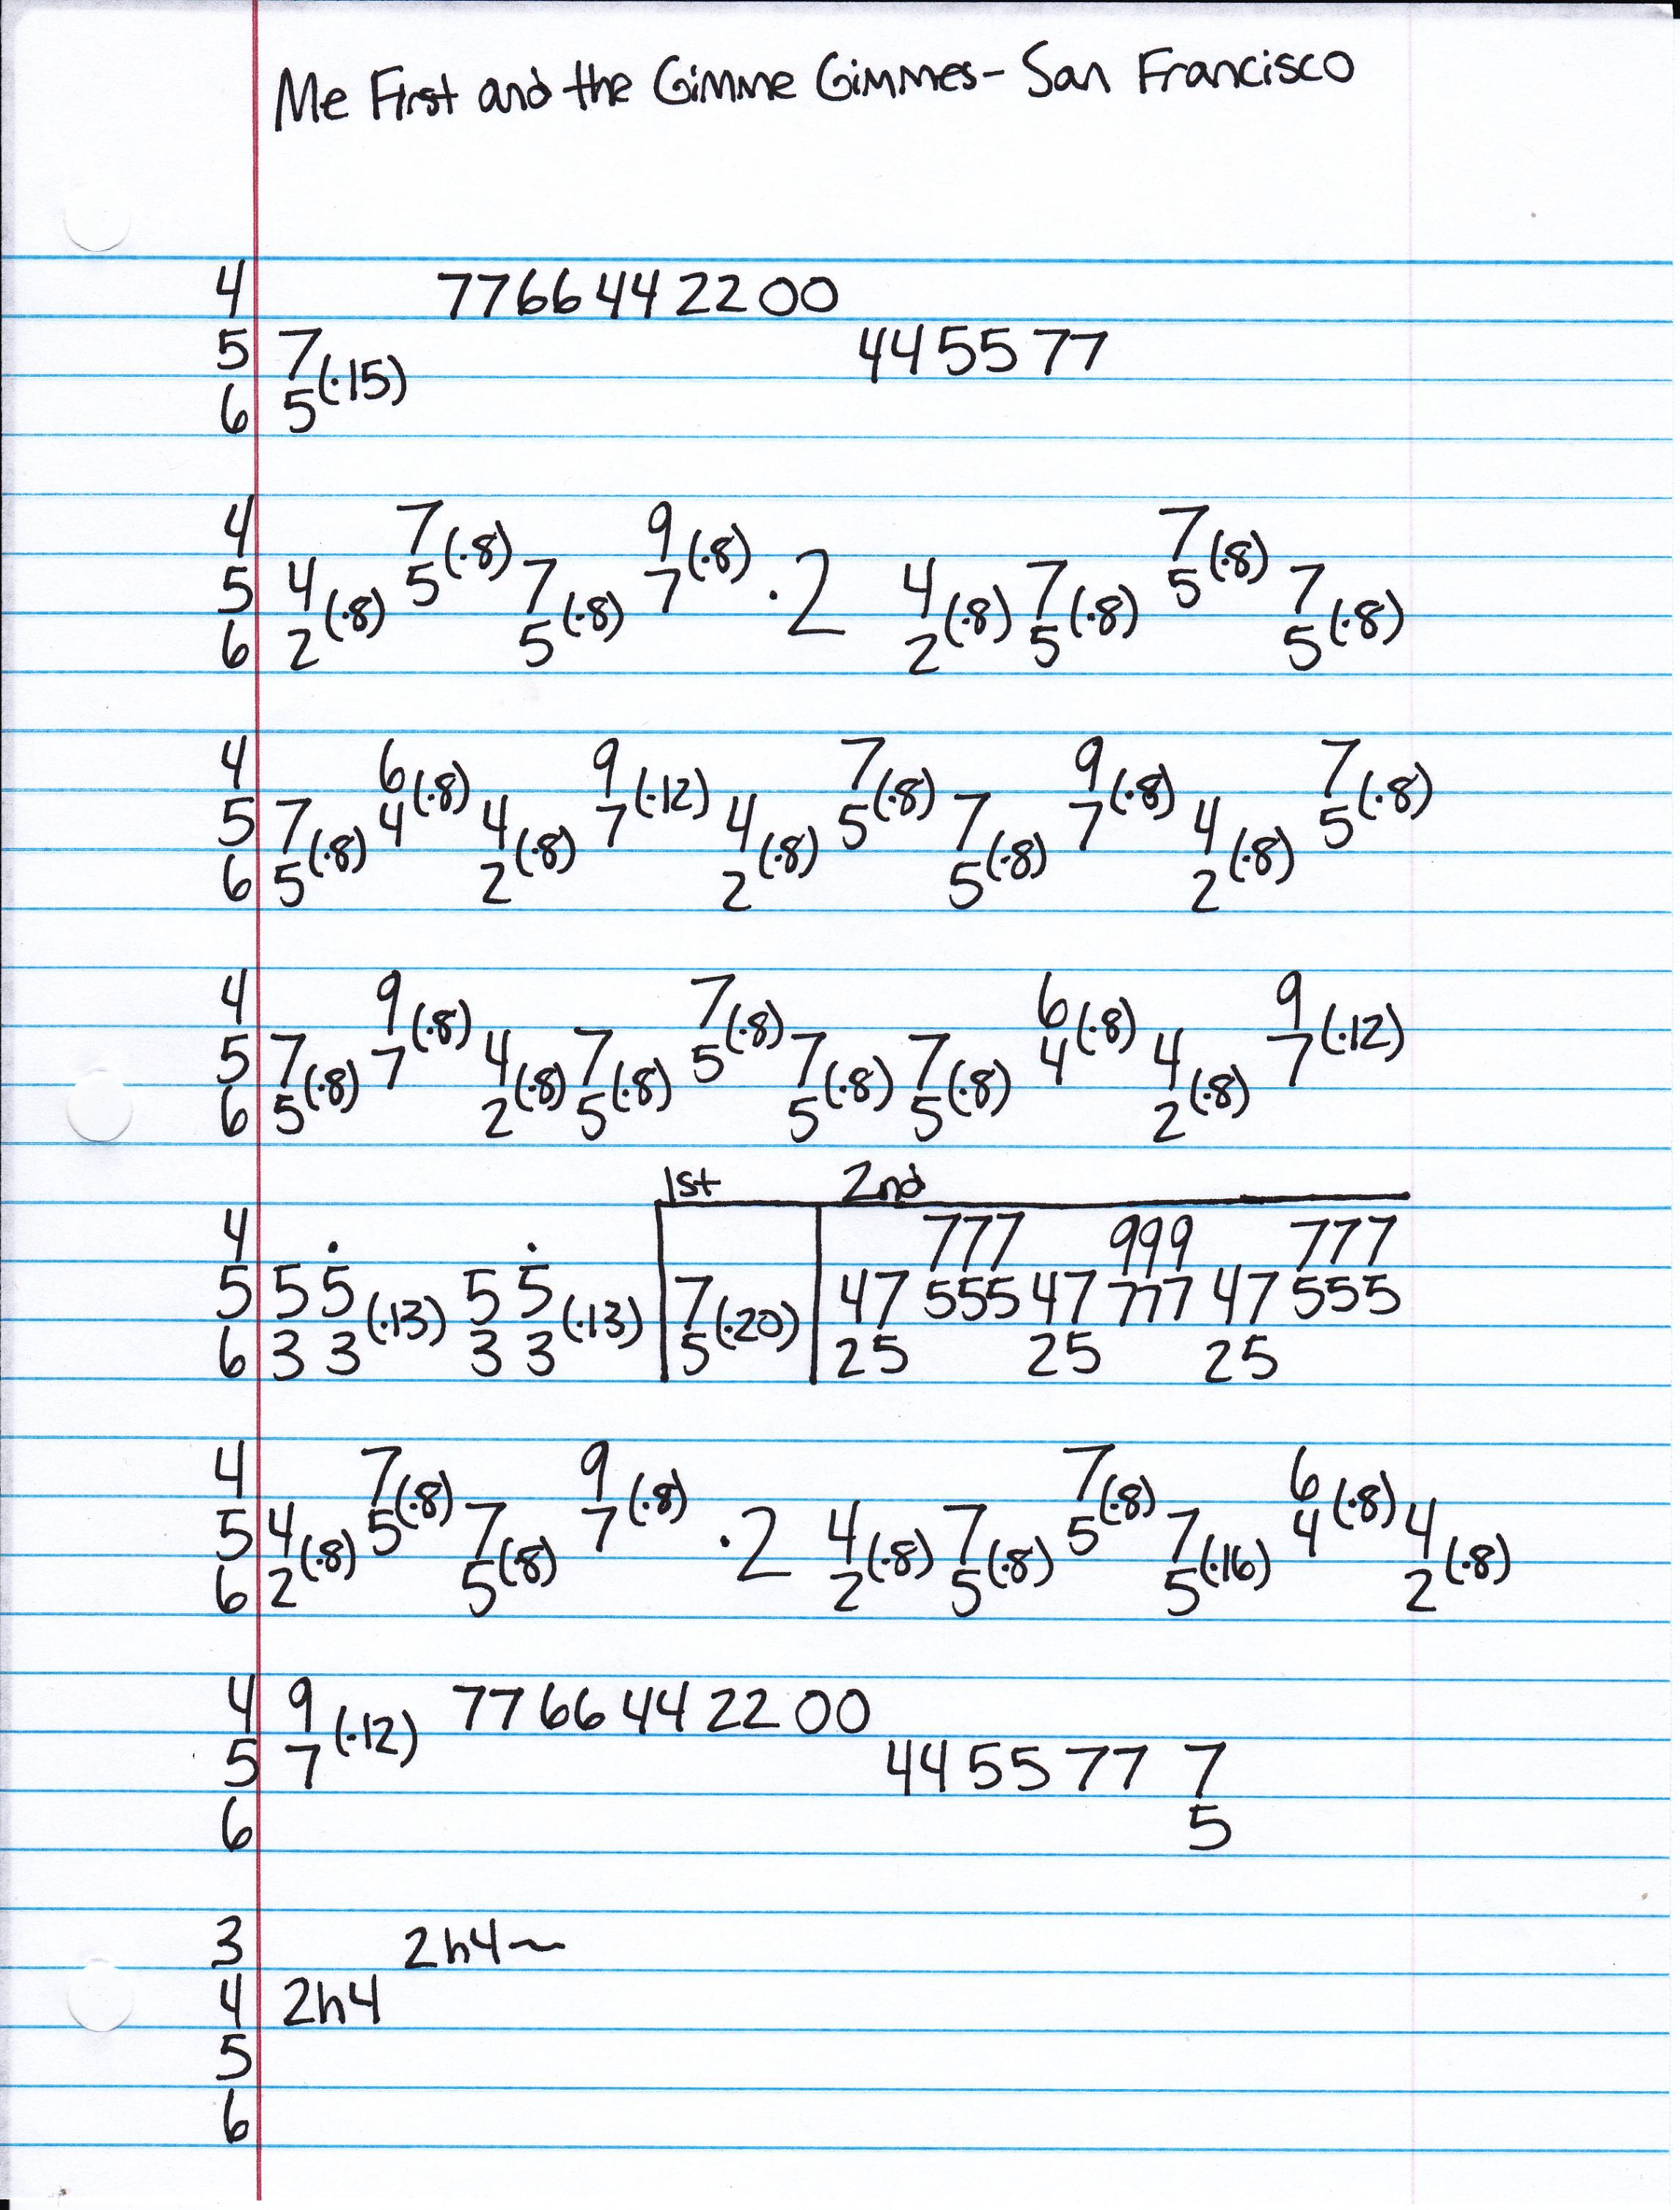 Me First and the Gimme Gimmes - San Francisco
4 7 7 6 6 4 4 2 2 0 0
5 7 (·15) 4 4 5 5 7 7
6 5
4 7 (·8) 9 (·8) 7 (·8)
5 4 (·8) 5 7 (·8) 7 ·2 4 (·8) 7 (·8) 5 7 (·8)
6 2 5 2 5 5
4 6 (·8) 9 (·12) 7 (·8) 9 (·8) 7 (·8)
5 7 (·8) 4 4 (·8) 7 4 (·8) 5 7 (·8) 7 4 (·8) 5
6 5 2 2 5 2
4 9 (·8) 7 (·8) 6 (·8) 9 (·12)
5 7 (·8) 7 4 (·8) 7 (·8) 5 7 (·8) 7 (·8) 4 4 (·8) 7
6 5 2 5 5 5 2
1st 2nd
4 777 999 777
5 5 5̇ (·13) 5 5̇ (·13) 7 (·20) 47 555 47 777 47 555
6 3 3 3 3 5 25 25 25
4 7 (·8) 9 (·8) 7 (·8) 6 (·8)
5 4 (·8) 5 7 (·8) 7 ·2 4 (·8) 7 (·8) 5 7 (·16) 4 4 (·8)
6 2 5 2 5 5 2
4 9 (·12) 7 7 6 6 4 4 2 2 0 0
5 7 4 4 5 5 7 7 7
6 5
3 2h4~
4 2h4
5
6